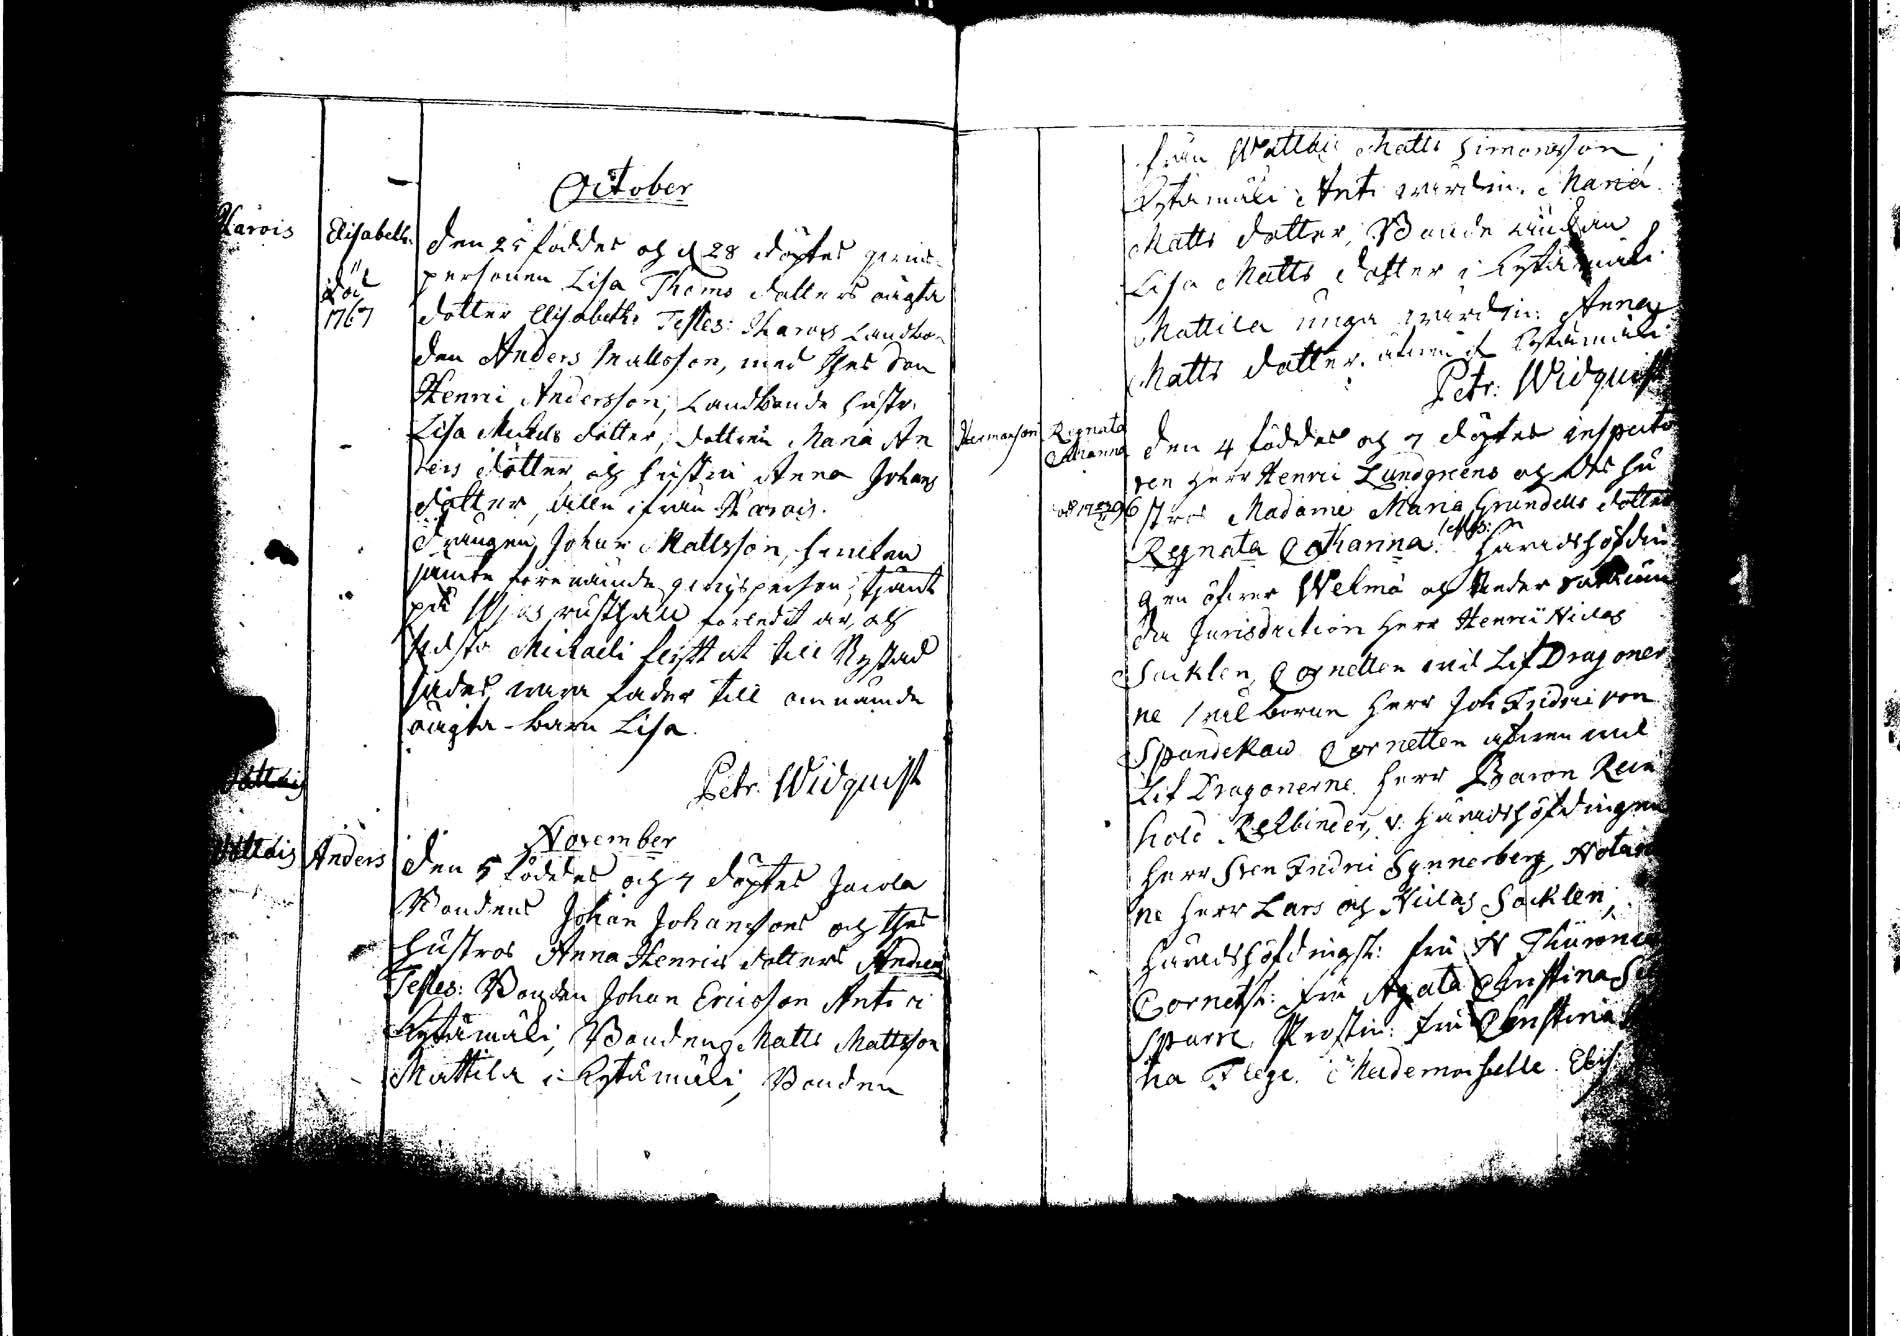 October
Karois
Elisabeth.
död
1767
Den 25 föddes och d 28 döptes qvins
personen Lisa Thoms dotters oägta
dotter Elisabeth. Testes: Karois Landbon
den Anders Mattsson, med thes Son
Henric Andersson, Landbonde hustr.
Lisa Michels dotter, dottren Maria An
ders dotter och hustru Anna Johans
dotter, alle ifrån Karois.
Drängen Johan Mattsson, hwilken
jämte förenämde qvinsperson, tjänt
på rusthåll förledit år, och
sidsta Michaeli flytt ut till Nystad
sades wara fader till omnämde
oägta-barn Lisa.
Petr. Widquist
November
Wattois
Anders
Den 5 föddes och 7 döptes Jacola
Bondens Johan Johanssons och thes
hustros Anna Henrics dotters Anders
Testes: Bonden Johan Ericsson Anti i
Kytämäki, Bonden Matts Mattsson
Mattila i Kytämäki, Bonden
från Wattois Matts Simonsson,
Kytämäki Anti wärdin. Maria
Matts dotter, Bonde änkan
Lisa Matts dotter i Kytämäki
Mattila unga wärdin: Anna
Matts dotter. Kytämäki
Petr: Widquist
Hermansons
Regnata
Catharina
Den 4 föddes och 7 döptes inspecto
ren Herr Henric Lundgrens och des hu
stros Madame Maria Grundells dotter
Regnata Catharina. testes: Häradshöfdin
gen öfwer Wehmo och Neder
da Jurisdiction Herr Henric Niclas
Sacklen, Cornetten wid Lif Dragoner
ne wälborne Herr Joh Fridric von
Spandekow Cornetten wid
Lif Dragonerne Herr Baron Rein
hold Rehbinder, v. Häradshöfdingen
Herr Sven Fridric Synnerberg, Notarier
ne Herr Lars och Niclas Sacklen,
Häradshöfdingsk: Fru N
Cornetsk: Fru Agata Christina
Sparre, Prostin: Fru Christina
Flege. Mademoiselle Elis